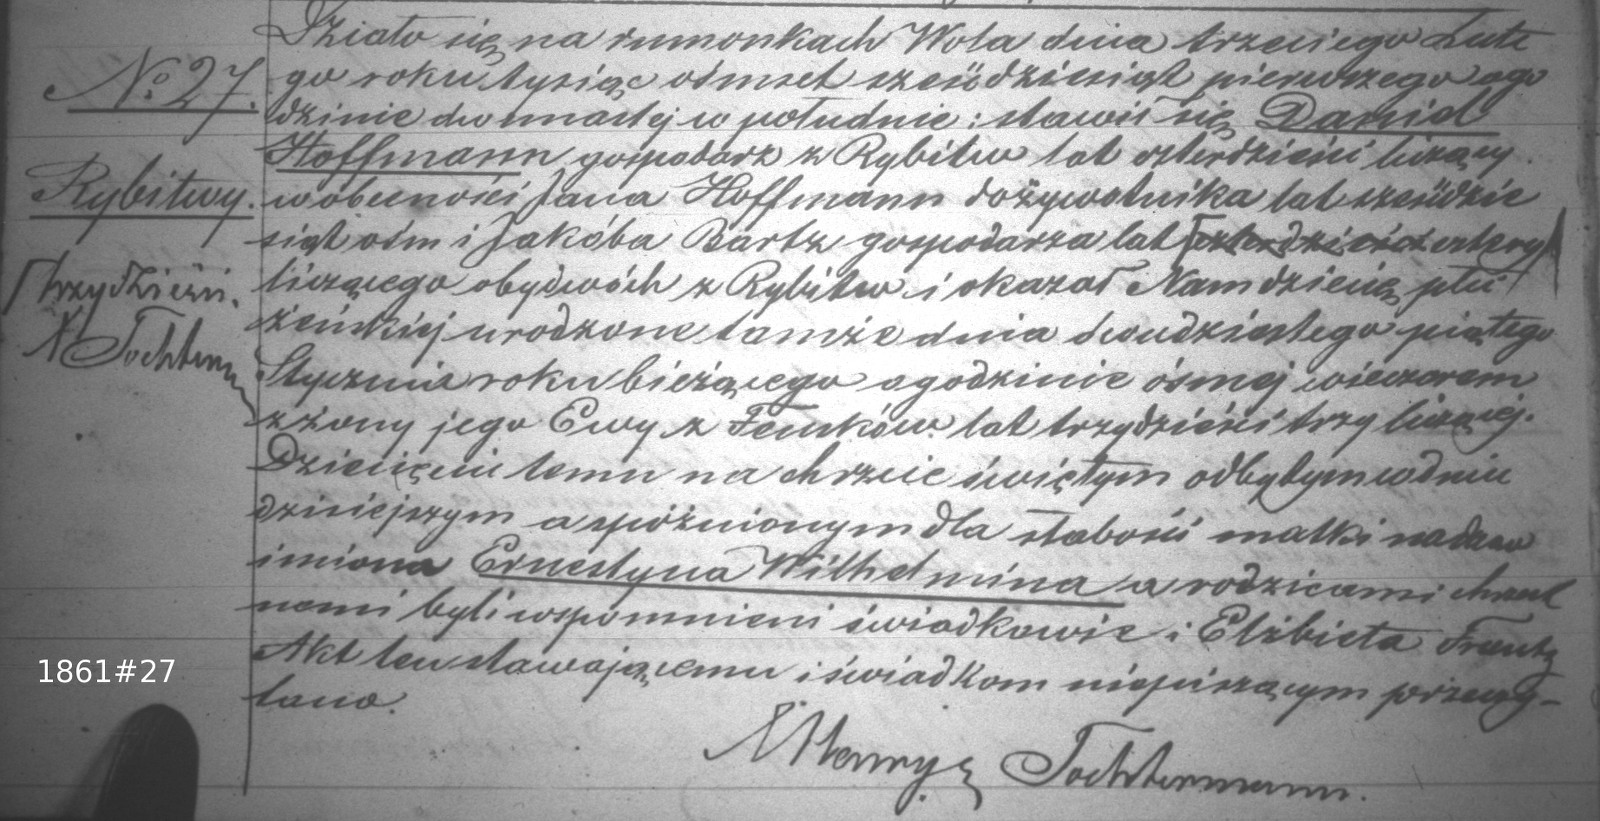 Działo się na rumonkach Wola dnia trzeciego Lute
No 27. go roku tysiąc ośmset sześćdziesiąt pierwszego o go
dzinie dwunastej w południe: stawił się Daniel
Hoffmann gospodarz z Rybitw lat czterdzieści liczący
Rybitwy. w obecności Jana Hoffmann dożywotnika lat sześćdzie
siąt ośm i Jakóba Bartz gospodarza lat czterdzieści cztery
trzydzieści. liczącego obydwóch z Rybitw i okazał Nam dziecię płci
żeńskiej urodzone tamże dnia dwudziestego piątego
Tochterm Stycznia roku bieżącego o godzinie ósmej wieczorem
z żony jego Ewy z Fenków lat trzydzieści trzy liczącej.
Dziecięciu temu na chrzcie świętym odbytym w dniu
dzisiejszym a spóźnionym dla słabości matki nadano
imiona Ernestyna Wilhelmina a rodzicami chrzest
nemi byli wspomnieni świadkowie i Elżbieta Frantz
Akt ten stawającemu i świadkom niepiszącym przeczy-
1861#27
tano.
X Henryk Tochtermann.